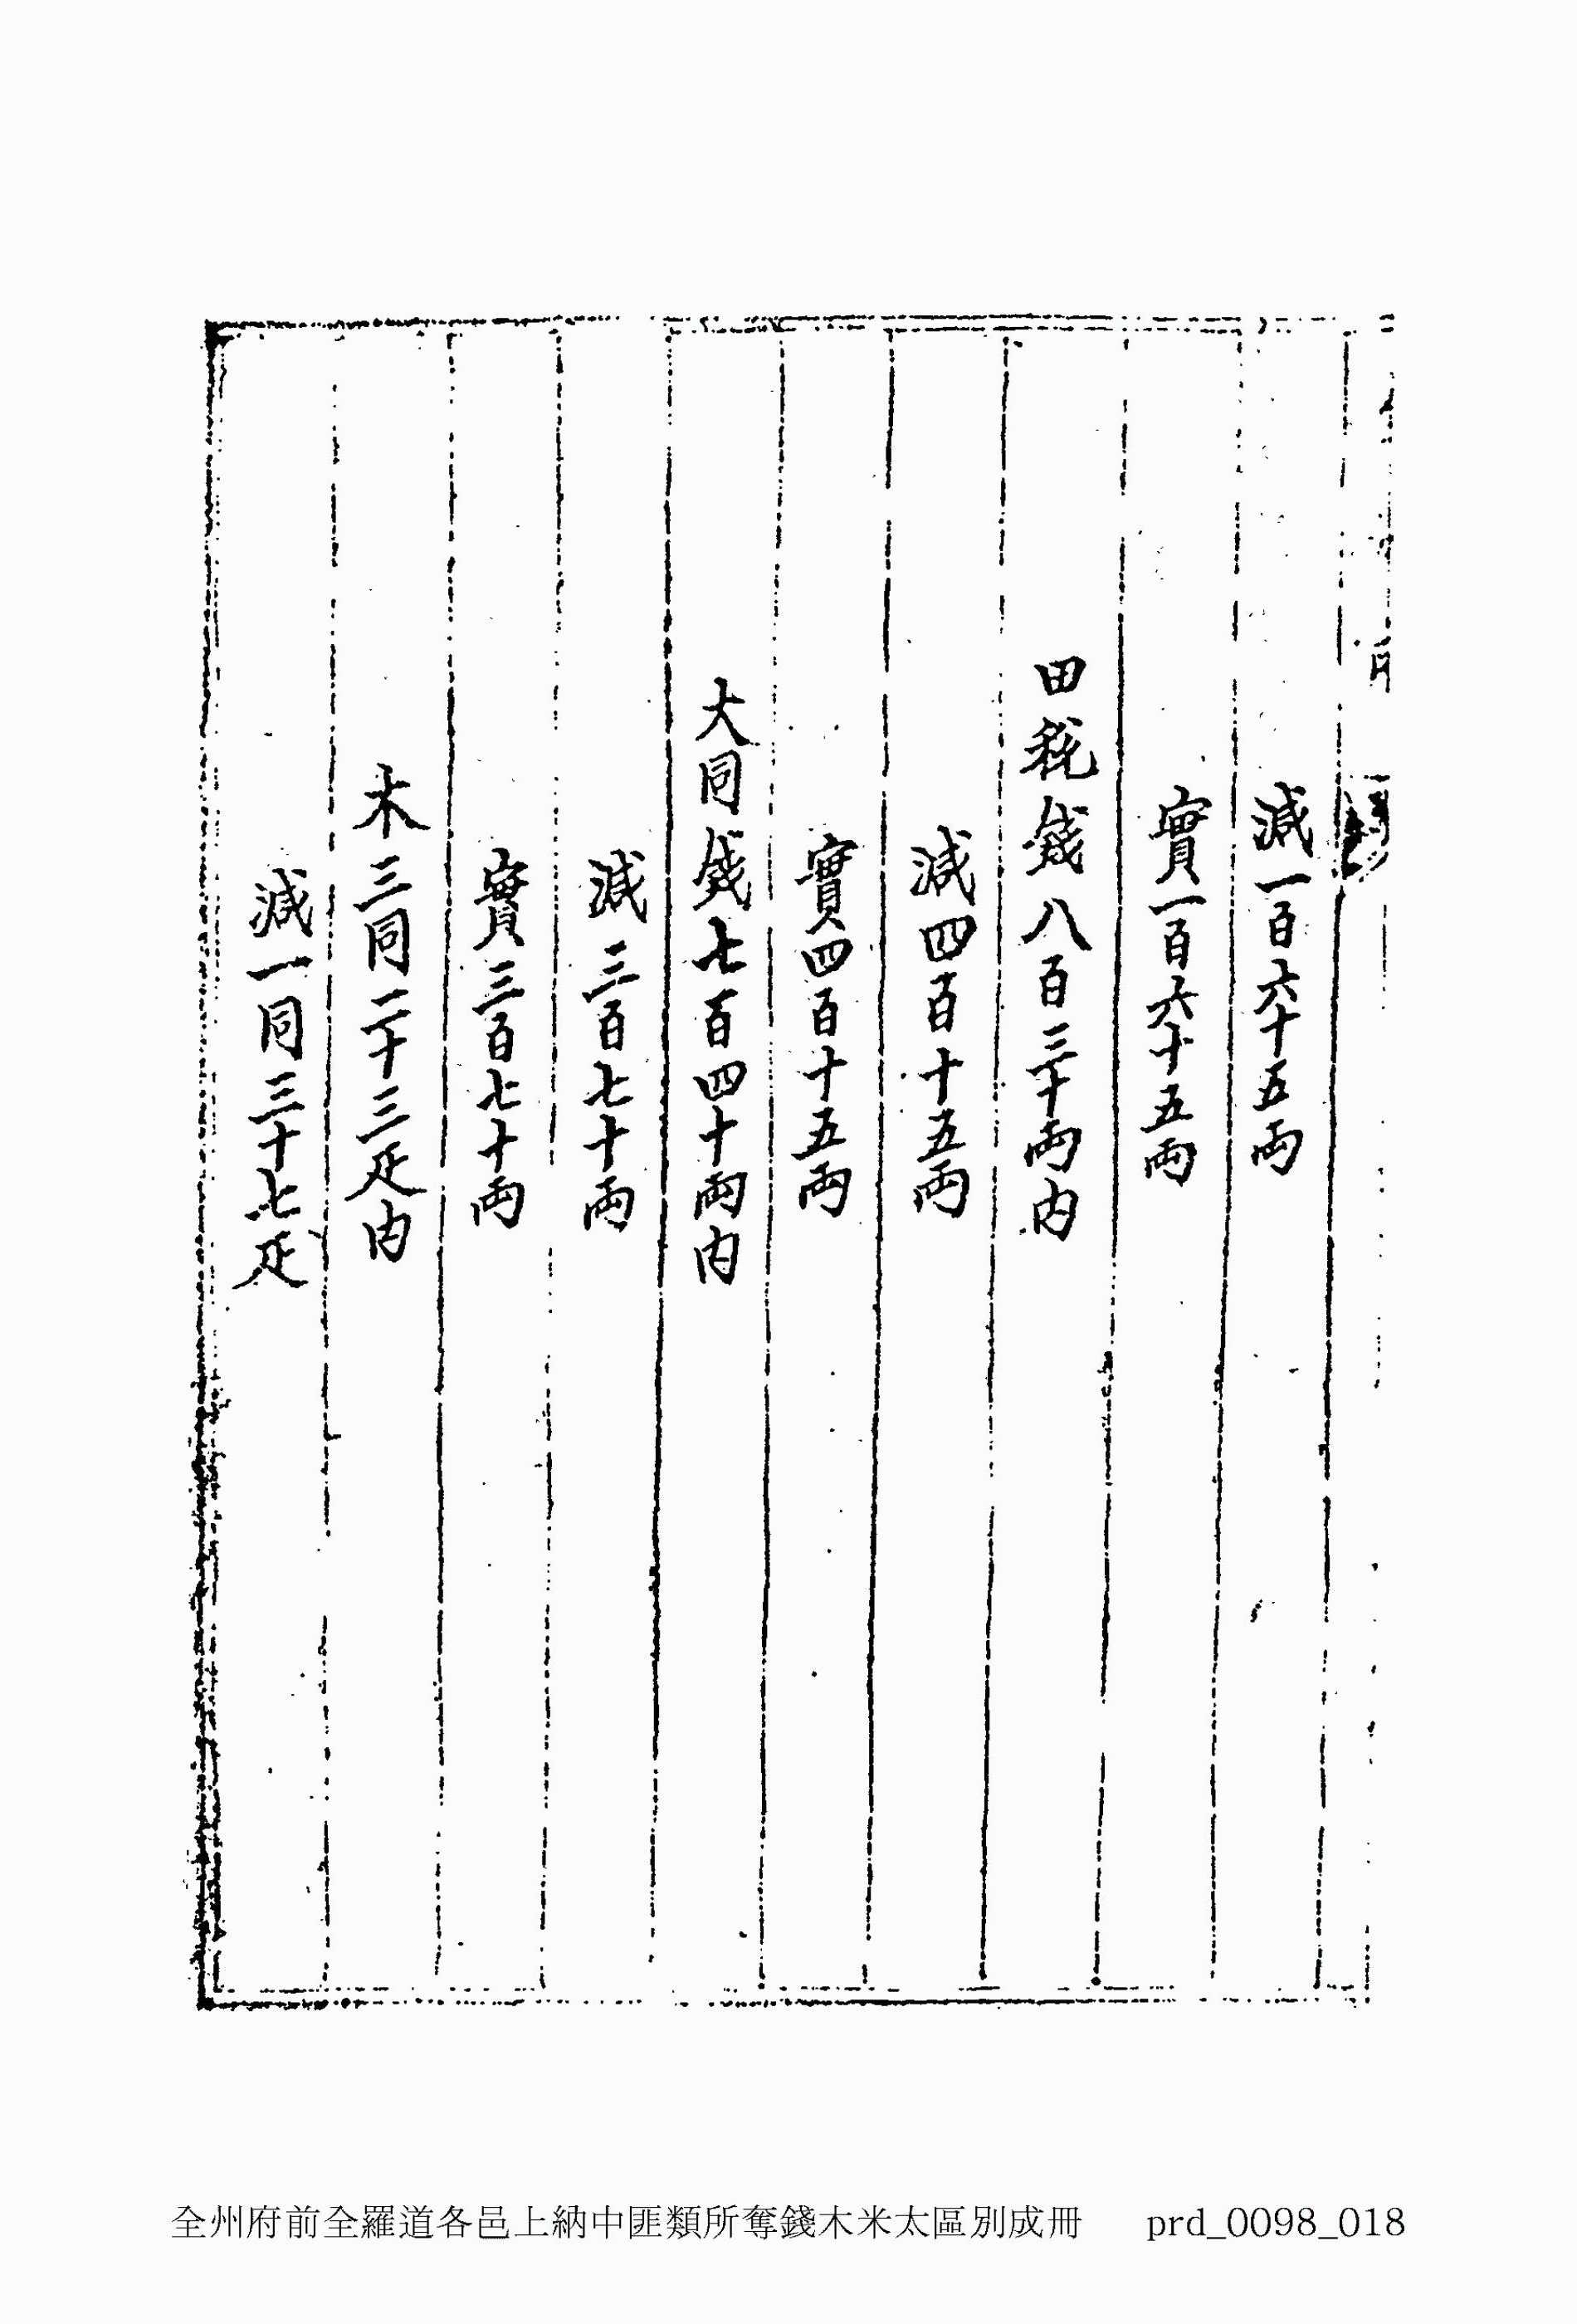 減一百六十五両
實一百六十五両
田税錢八百三十両内
減四百十五両
實四百十五両
大同錢七百四十両内
減三百七十両
實三百七十両
木三同二十三疋内
減一同三十七疋
全州府前全羅道各邑上納中匪類所奪錢木米太區別成冊 prd_0098_018